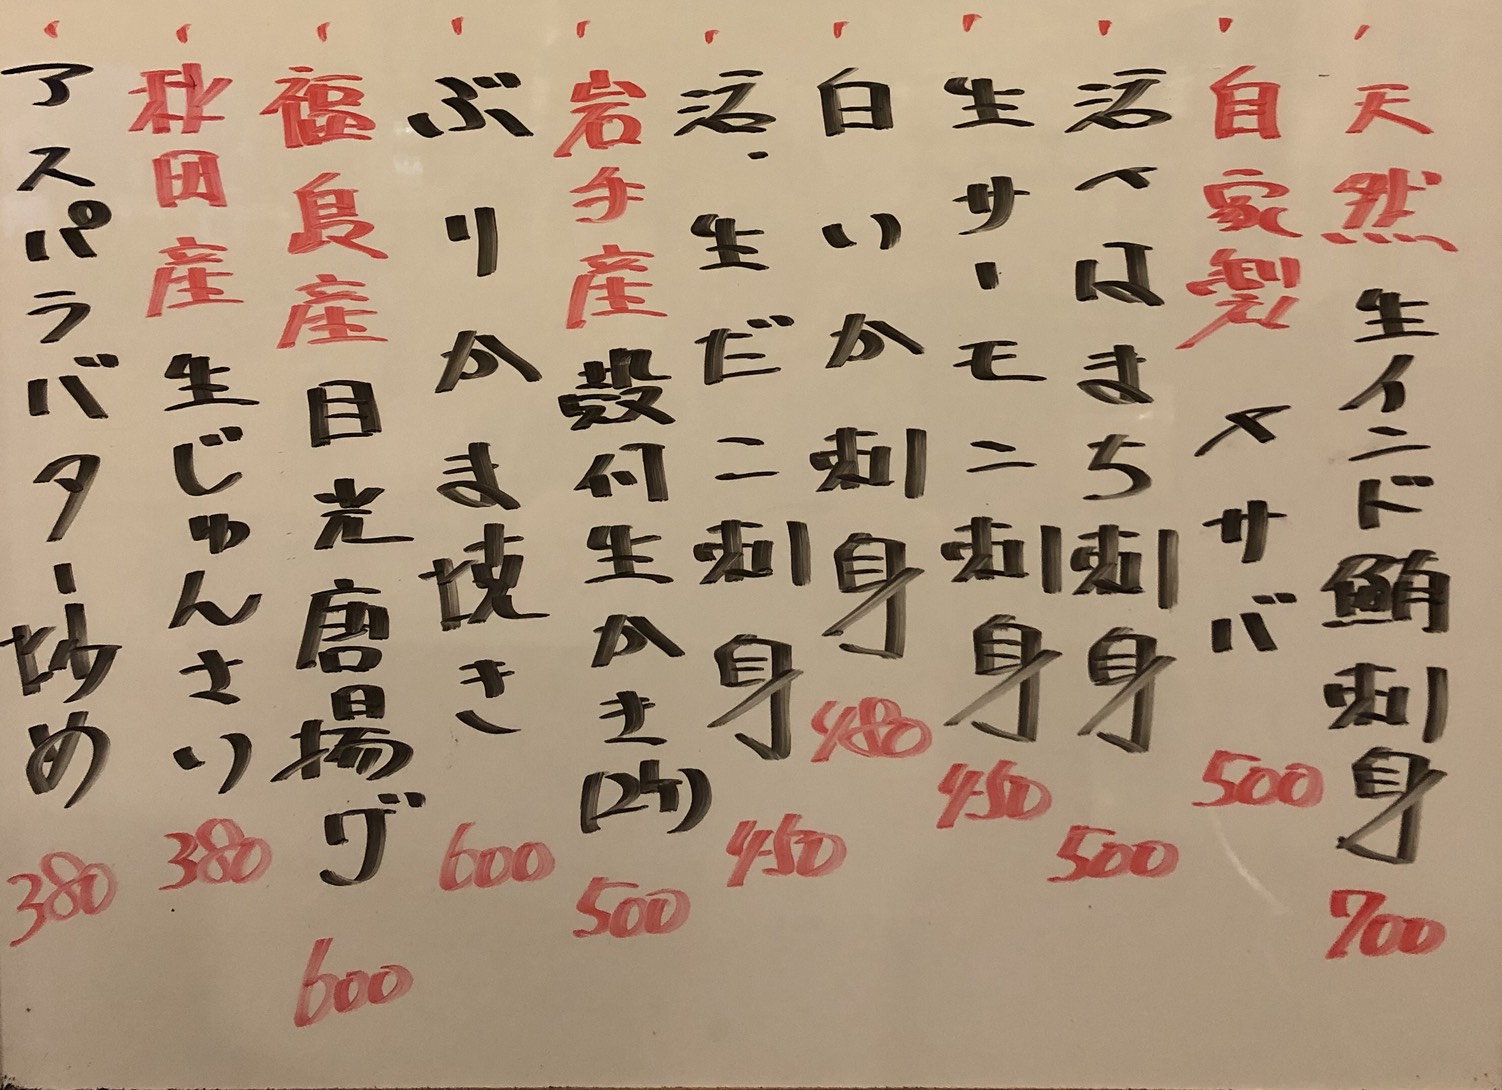 天然 生インド鮪刺身 700
自家製 〆サバ 500
活〆はまち刺身 500
生サーモン刺身 450
白いか刺身 480
活・生だこ刺身 450
岩手産 殻付生かき(2ケ) 500
ぶりかま焼き 600
福島産 目光唐揚げ 600
秋田産 生じゅんさい 380
アスパラバター炒め 380